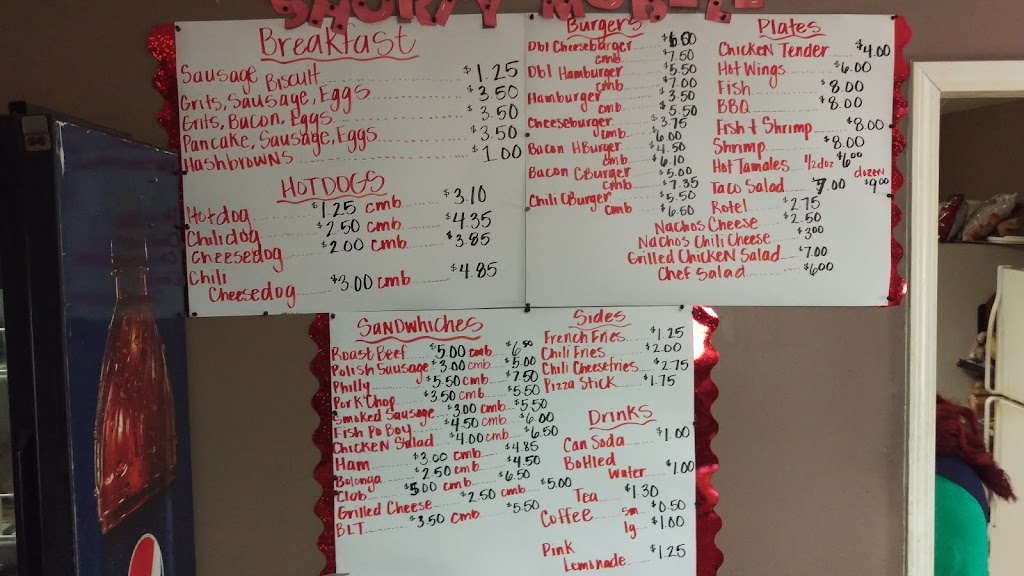 SHORTY MOBILE
Breakfast
Sausage Biscuit $1.25
Grits, Sausage, Eggs $3.50
Grits, Bacon, Eggs 3.50
Pancake, Sausage, Eggs $3.50
Hashbrowns $1.00
HOTDOGS
Hotdog $1.25 cmb $3.10
Chilidog $2.50 cmb $4.35
Cheesedog $2.00 cmb $3.85
Chili
Cheesedog $3.00 cmb $4.85
Burgers
Dbl Cheeseburger $6.00
cmb $7.50
Dbl Hamburger $5.50
cmb $7.00
Hamburger $3.50
cmb $5.50
Cheeseburger $3.75
cmb $6.00
Bacon HBurger $4.50
cmb $6.10
Bacon CBurger $5.00
cmb $7.35
Chili CBurger $5.50
cmb $6.50
Plates
Chicken Tender $4.00
Hot Wings $6.00
Fish $8.00
BBQ $8.00
Fish & Shrimp $8.00
Shrimp $8.00
Hot Tamales 1/2 doz $6.00 dozen $9.00
Taco Salad 7.00
Rotel $2.75
Nachos Cheese $2.50
Nachos Chili Cheese $3.00
Grilled Chicken Salad $7.00
Chef Salad $6.00
SANDWHICHES
Roast Beef $5.00 cmb $6.50
Polish Sausage $3.00 cmb $5.00
Philly $5.50 cmb $7.50
Pork Chop $3.50 cmb $5.50
Smoked Sausage $3.00 cmb $5.50
Fish Po Boy $4.50 cmb $6.00
Chicken Salad $4.00 cmb $6.50
Ham $3.00 cmb $4.85
Bolonga $2.50 cmb $4.50
Club $5.00 cmb $6.50
Grilled Cheese $2.50 cmb $5.00
BLT $3.50 cmb $5.50
Sides
French Fries $1.25
Chili Fries $2.00
Chili Cheesefries $2.75
Pizza Stick $1.75
DRINKS
Can Soda $1.00
Bottled
Water $1.00
Tea $1.30
Coffee sm $0.50
lg $1.00
Pink
Lemonade $1.25